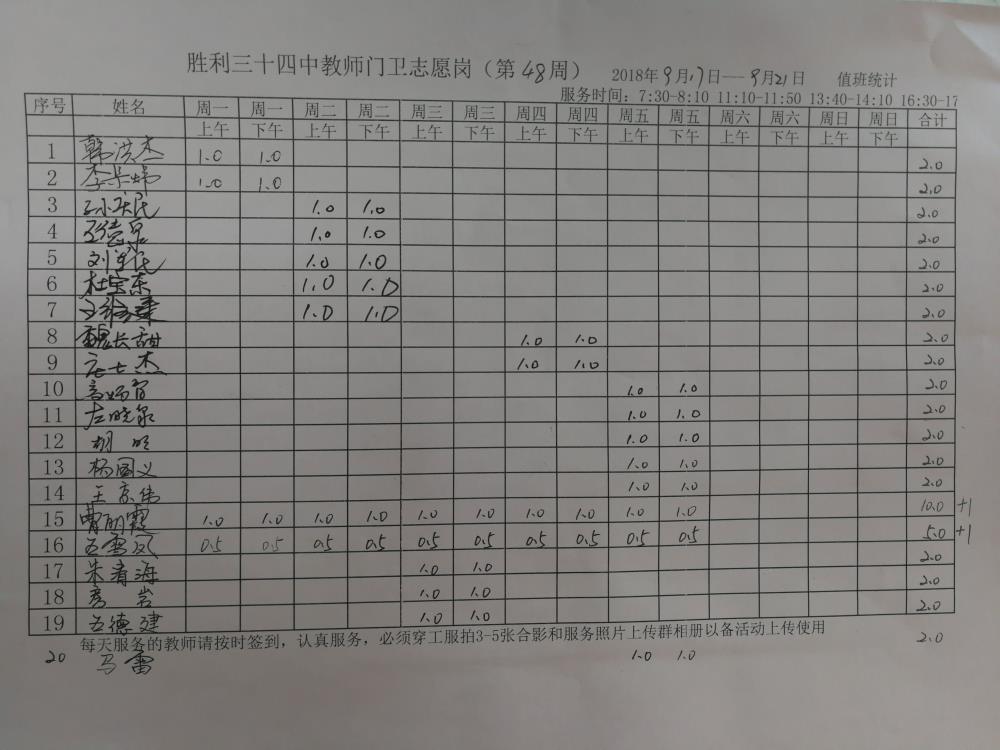 胜利三十四中教师门卫志愿岗（第48周） 2018年9月17日---9月21日 值班统计
服务时间：7:30-8:10 11:10-11:50 13:40-14:10 16:30-17
序号 姓名 周一 周一 周二 周二 周三 周三 周四 周四 周五 周五 周六 周六 周日 周日 合计
上午 下午 上午 下午 上午 下午 上午 下午 上午 下午 上午 下午 上午 下午
1 韩洪杰 1.0 1.0 2.0
2 李 1.0 1.0 2.0
3 民 1.0 1.0 2.0
4 泉 1.0 1.0 2.0
5 刘军民 1.0 1.0 2.0
6 杜宝东 1.0 1.0 2.0
7 1.0 1.0 2.0
8 魏长甜 1.0 1.0 2.0
9 士杰 1.0 1.0 2.0
10 1.0 1.0 2.0
11 左晓泉 1.0 1.0 2.0
12 胡明 1.0 1.0 2.0
13 杨国义 1.0 1.0 2.0
14 王京伟 1.0 1.0 2.0
15 曹丽霞 1.0 1.0 1.0 1.0 1.0 1.0 1.0 1.0 1.0 1.0 10.0 +1
16 王雪凤 0.5 0.5 0.5 0.5 0.5 0.5 0.5 0.5 0.5 0.5 5.0 +1
17 朱青海 1.0 1.0 2.0
18 岩 1.0 1.0 2.0
19 王德建 1.0 1.0 2.0
每天服务的教师请按时签到，认真服务，必须穿工服拍3-5张合影和服务照片上传群相册以备活动上传使用
20 马雷 1.0 1.0 2.0